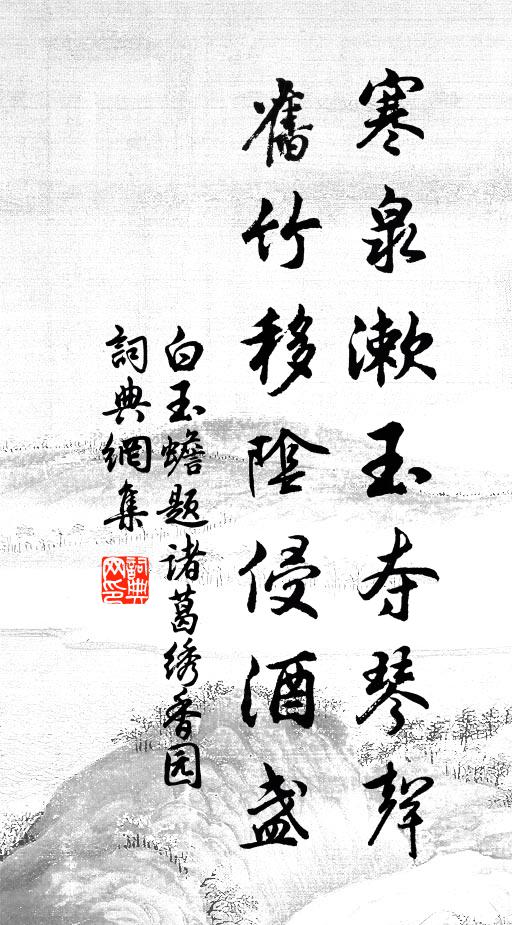 寒泉漱玉夺琴聲
舊竹移陰侵酒盏
白玉蟾题诸葛绣香园
詞典網集
詞典
网印